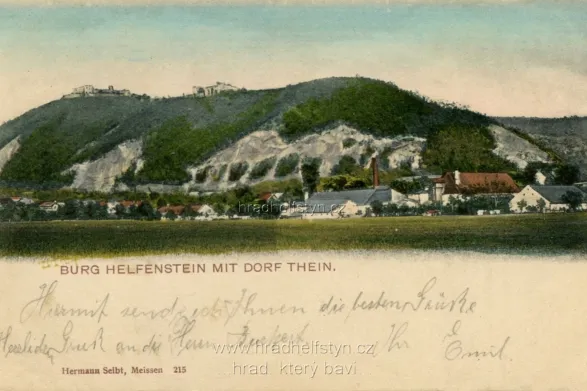 www.hradhelfstyn.cz
BURG HELFENSTEIN MIT DORF THEIN.
Hiermit send ich Ihnen die besten Grüße
Gruß an die Herrn Ihr Emil
www.hradhelfstyn.cz
hrad který baví
Hermann Seibt, Meissen 215